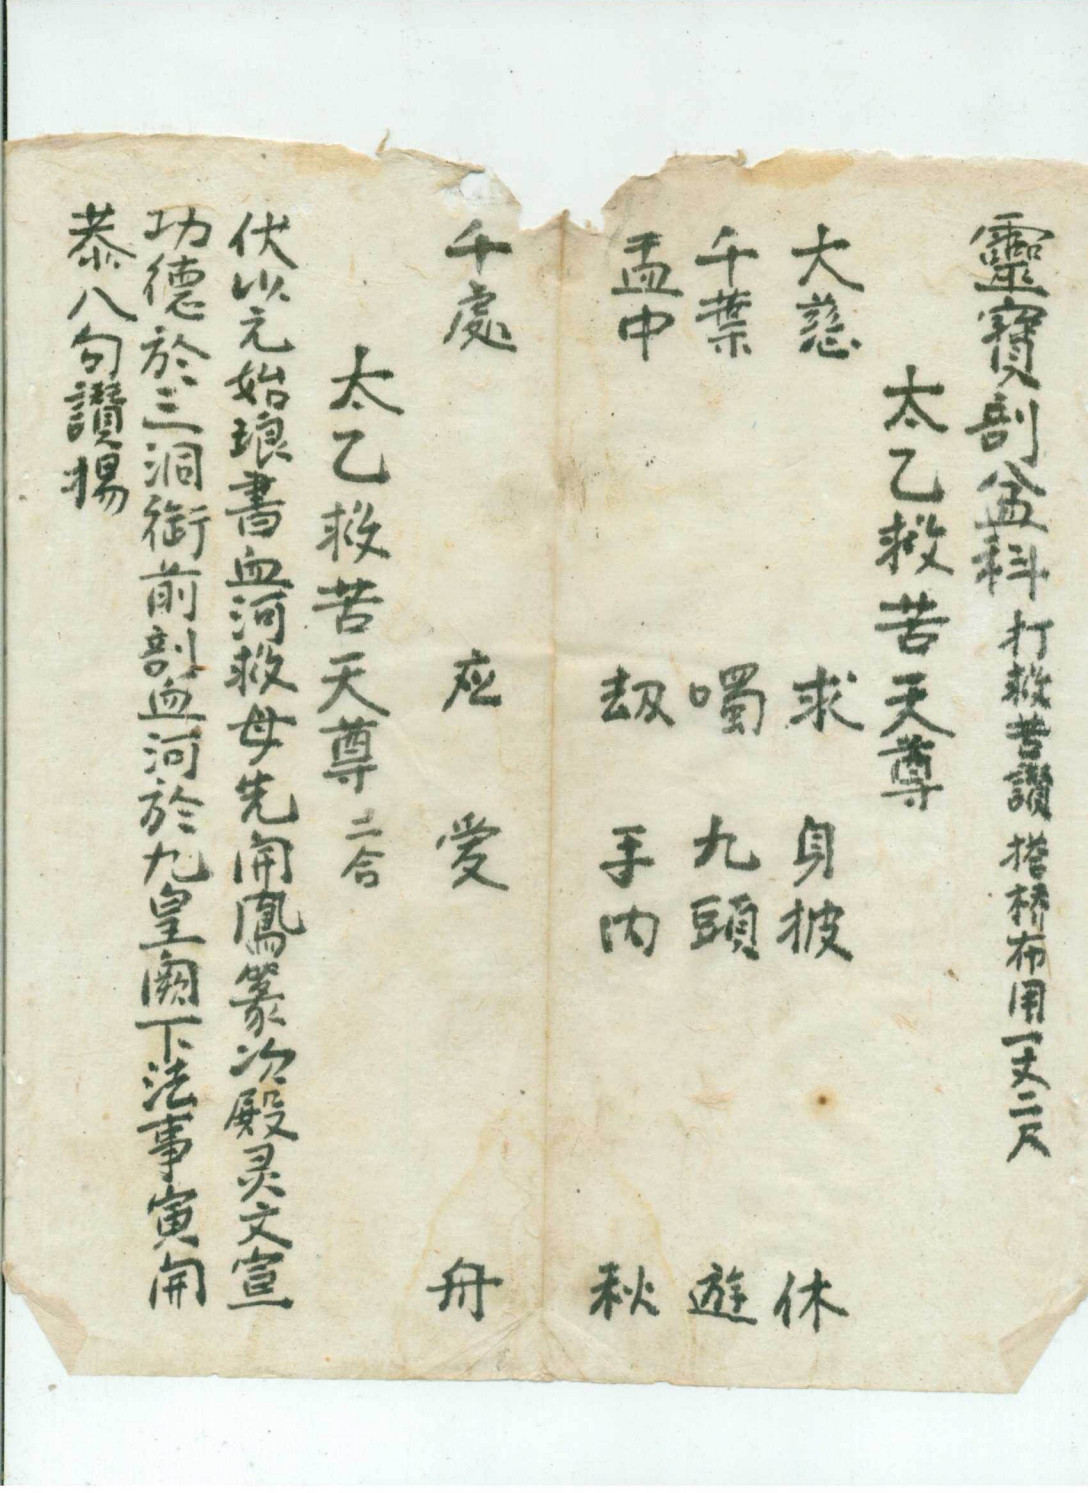 靈寶剖盆科 打救苦讚 搭橋布用一丈二尺
太乙救苦天尊
大慈 求 身披 休
千葉 噣 九頭 遊
盂中 劫 手内 秋
千處 应 愛 舟
太乙救苦天尊 二合
伏以元始琅書血河救母先開鳳篆次殿灵文宣
功德於三洞衘前剖血河於九皇阙下法事寅開
恭八句讚揚